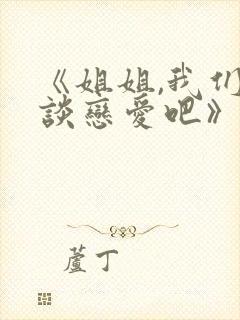 《姐姐,我们
談戀愛吧》
蘆丁